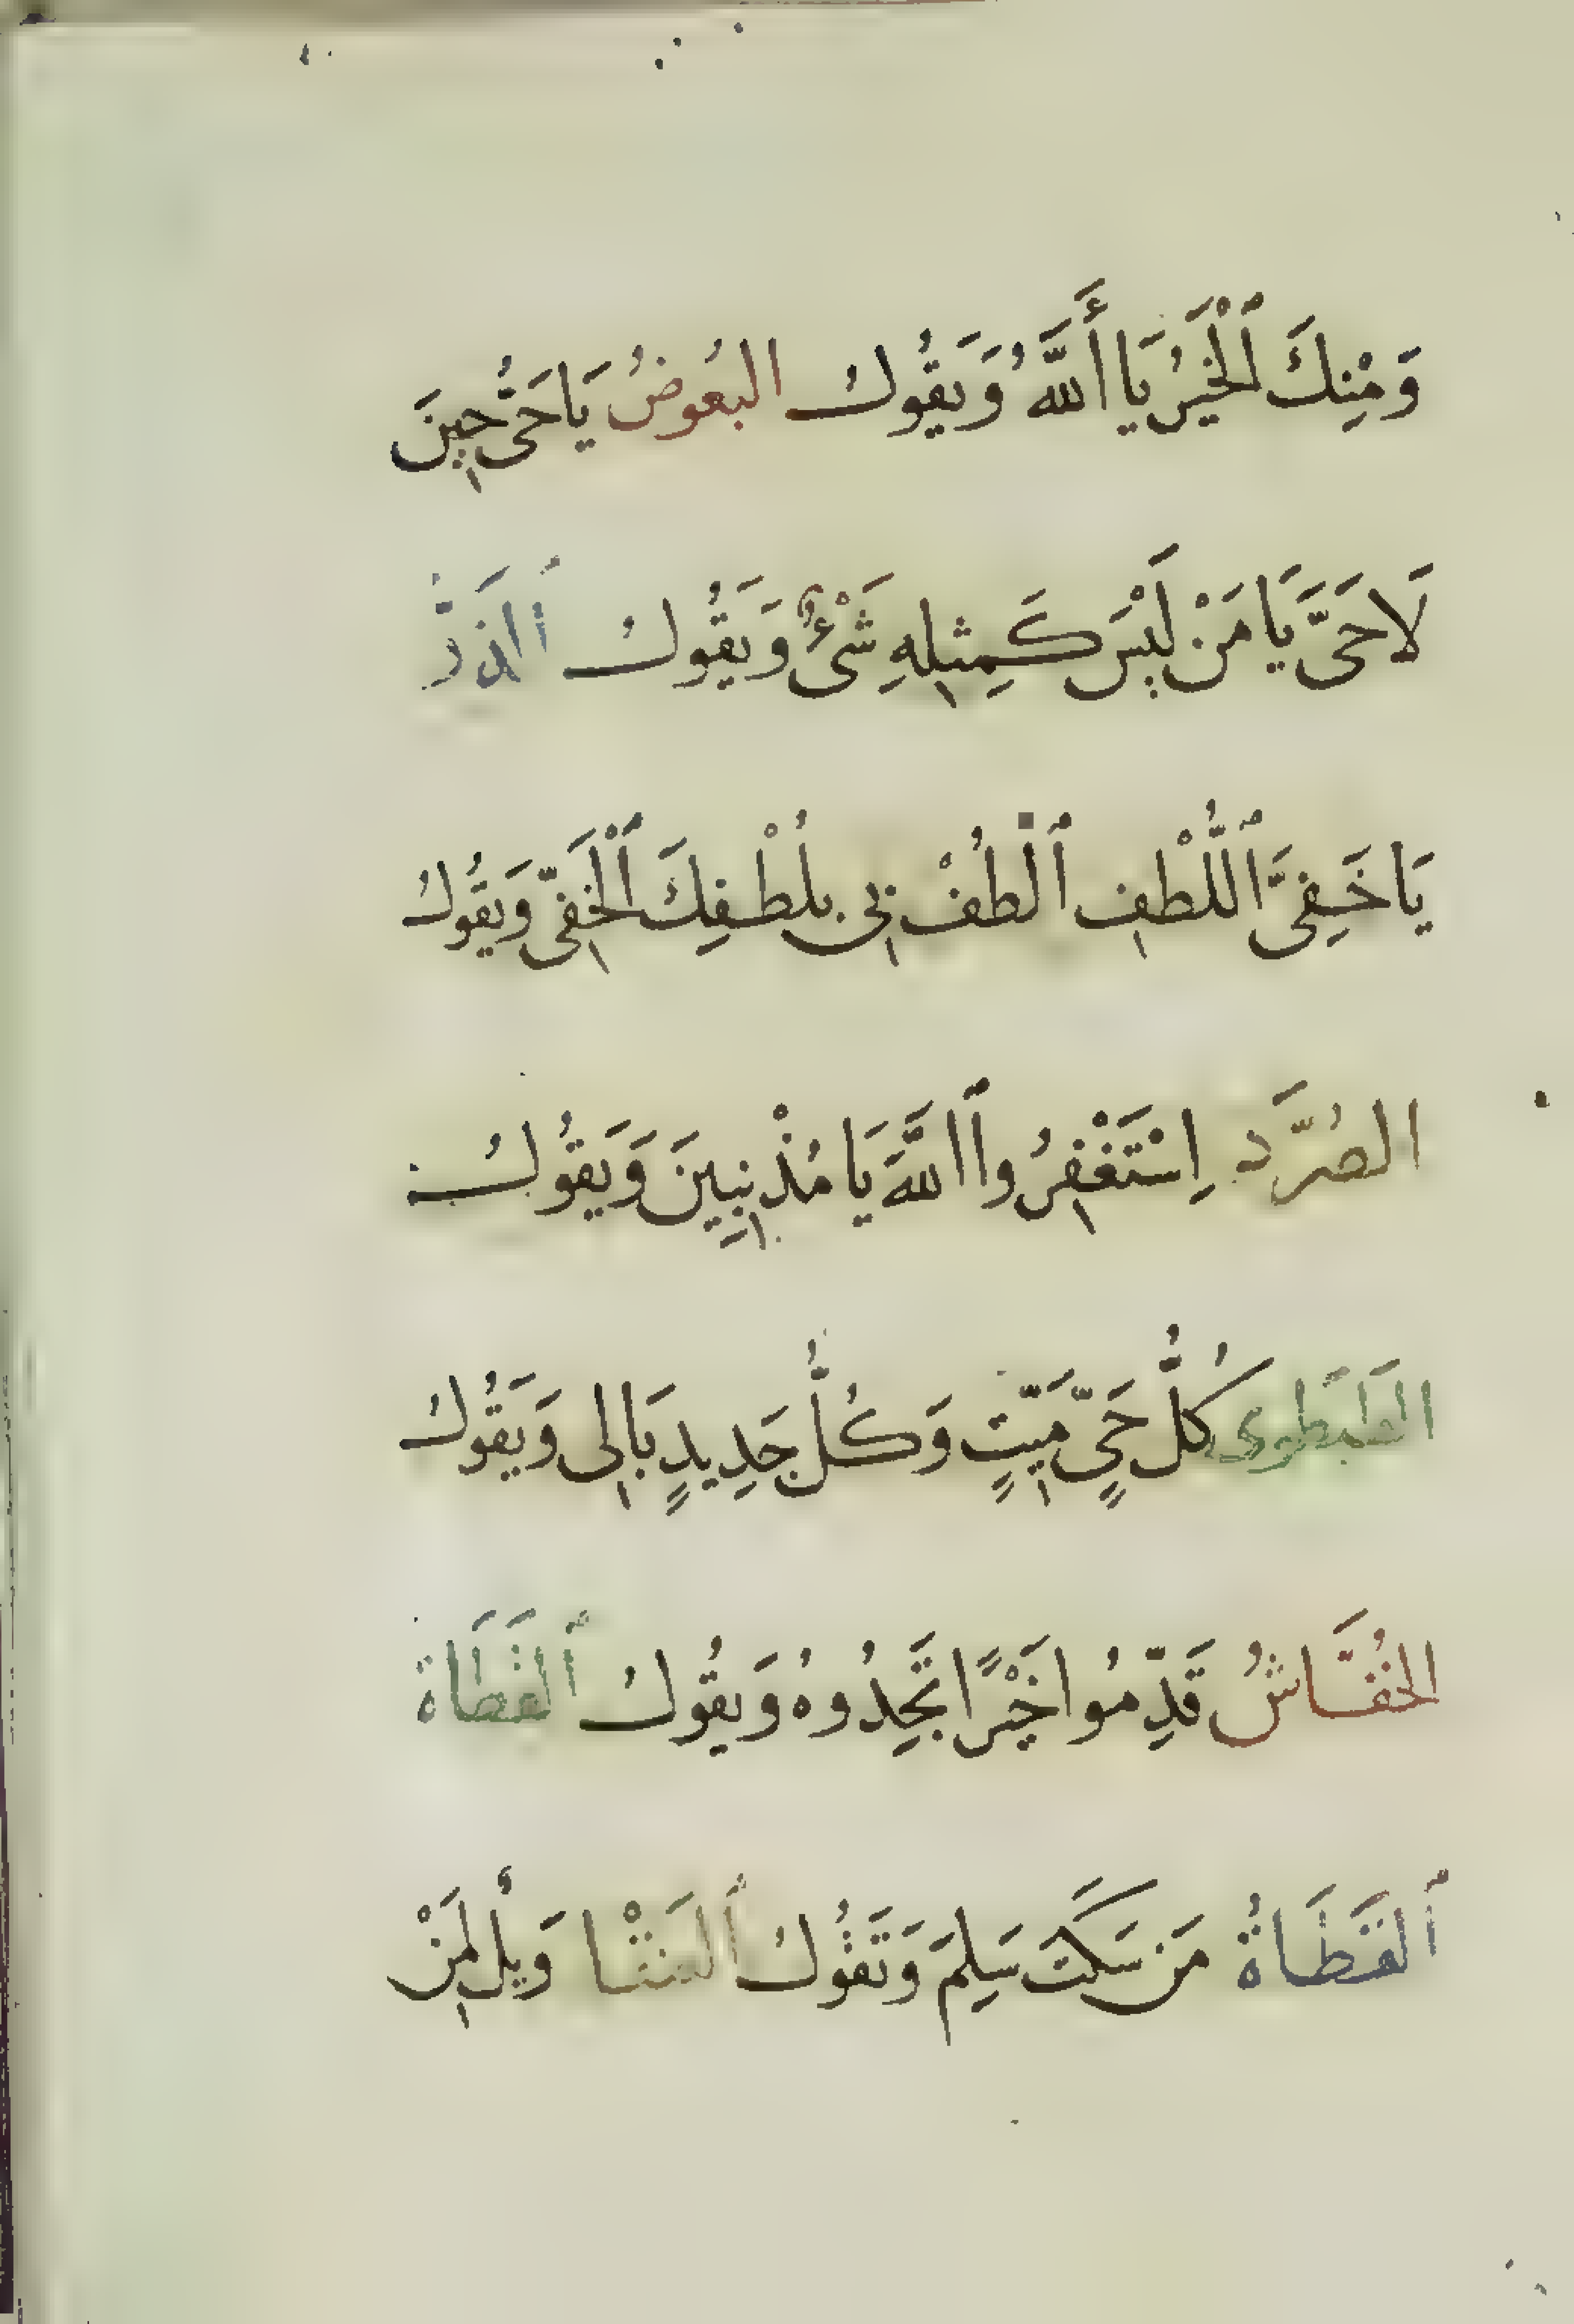 وَمِنْكَ ٱلْخَيْرُ يَا أَللَّهُ وَيَقُولُ البَعُوضُ يَا حَىُّ حِينَ
لَا حَىَّ يَا مَنْ لَيْسَ كَمِثْلِهِ شَىْءٌ وَيَقُولُ ٱلذَرُّ
يَا خَفِىَّ ٱللُّطْفِ ٱلْطُفْ بِى بِلُطْفِكَ ٱلْخَفِىِّ وَيَقُولُ
الصُرَّد اِسْتَغْفِرُوا ٱللَّهَ يَا مُذْنِبِينَ وَيَقُولُ
الطَيطَوى كُلُّ حَىٍّ مَيِّتٍ وَكُلُّ جَدِيدٍ بَالِى وَيَقُولُ
الخُفَّاشُ قَدِّمُوا خَيْرًا تَجِدُوهُ وَيَقُولُ ٱلقَطَاة
ٱلقَطَاةُ مَن سَكَتَ سَلِمَ وَتَقُولُ ٱلعَنْقَا وَيلٌ لِمَنْ